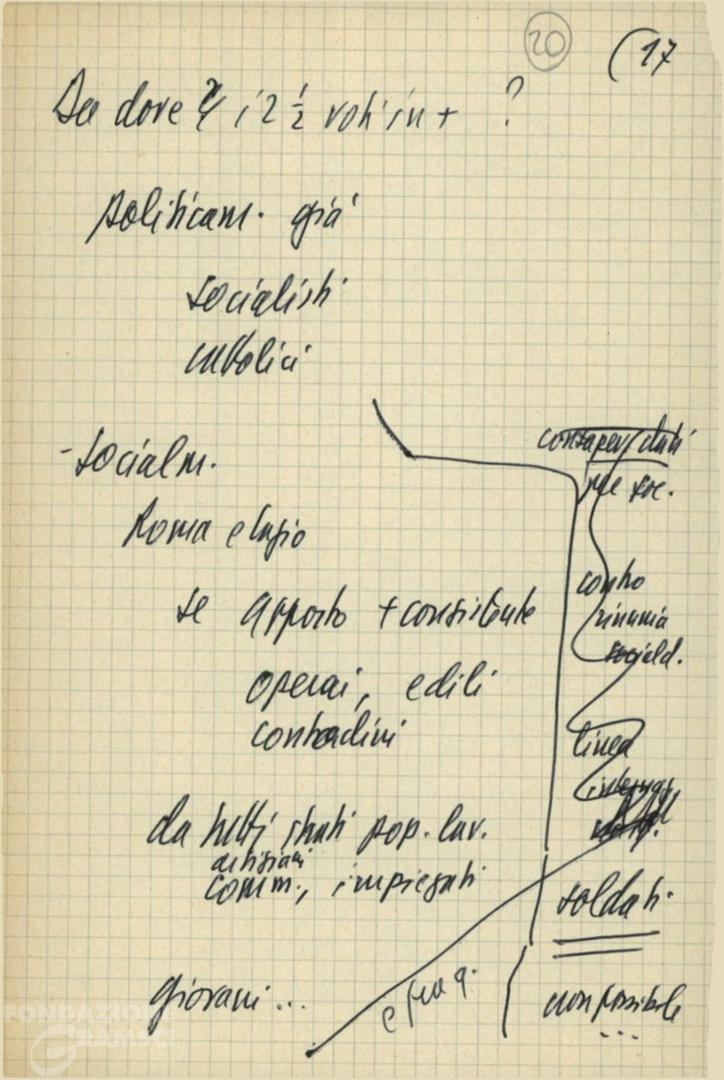 20 (17
Da dove i 2 1/2 voti in + ?
politicam. già
socialisti
cattolici
- socialm.
Roma e Lazio
se apporto + consistente
operai, edili
contadini
da tutti strati pop. lav.
artigiani
comm., impiegati
giovani ...
e fra q.
pre soc.
contro
rinuncia
sociald.
linea
soldati
non possibile
...
FONDAZIONE
GRAMSCI